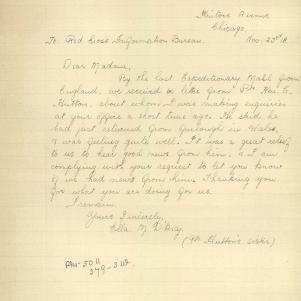 Avenue
Chicago.
To Red Cross Information Bureau. Nov. 23rd 18
Dear Madam,
By the last Expeditionary Mail from
England, we received a letter from Pte
Hutton, about whom I was making enquiries
at your office a short time ago. He said he
had just returned from furlough in Wales,
& was feeling quite well. It was a great relief
to us to hear good news from him, & I am
complying with your request to let you know
if we had news from him. Thanking you
for what you are doing for us.
I remain.
Yours Sincerely,
Ella M.
(Pte Hutton's sister).